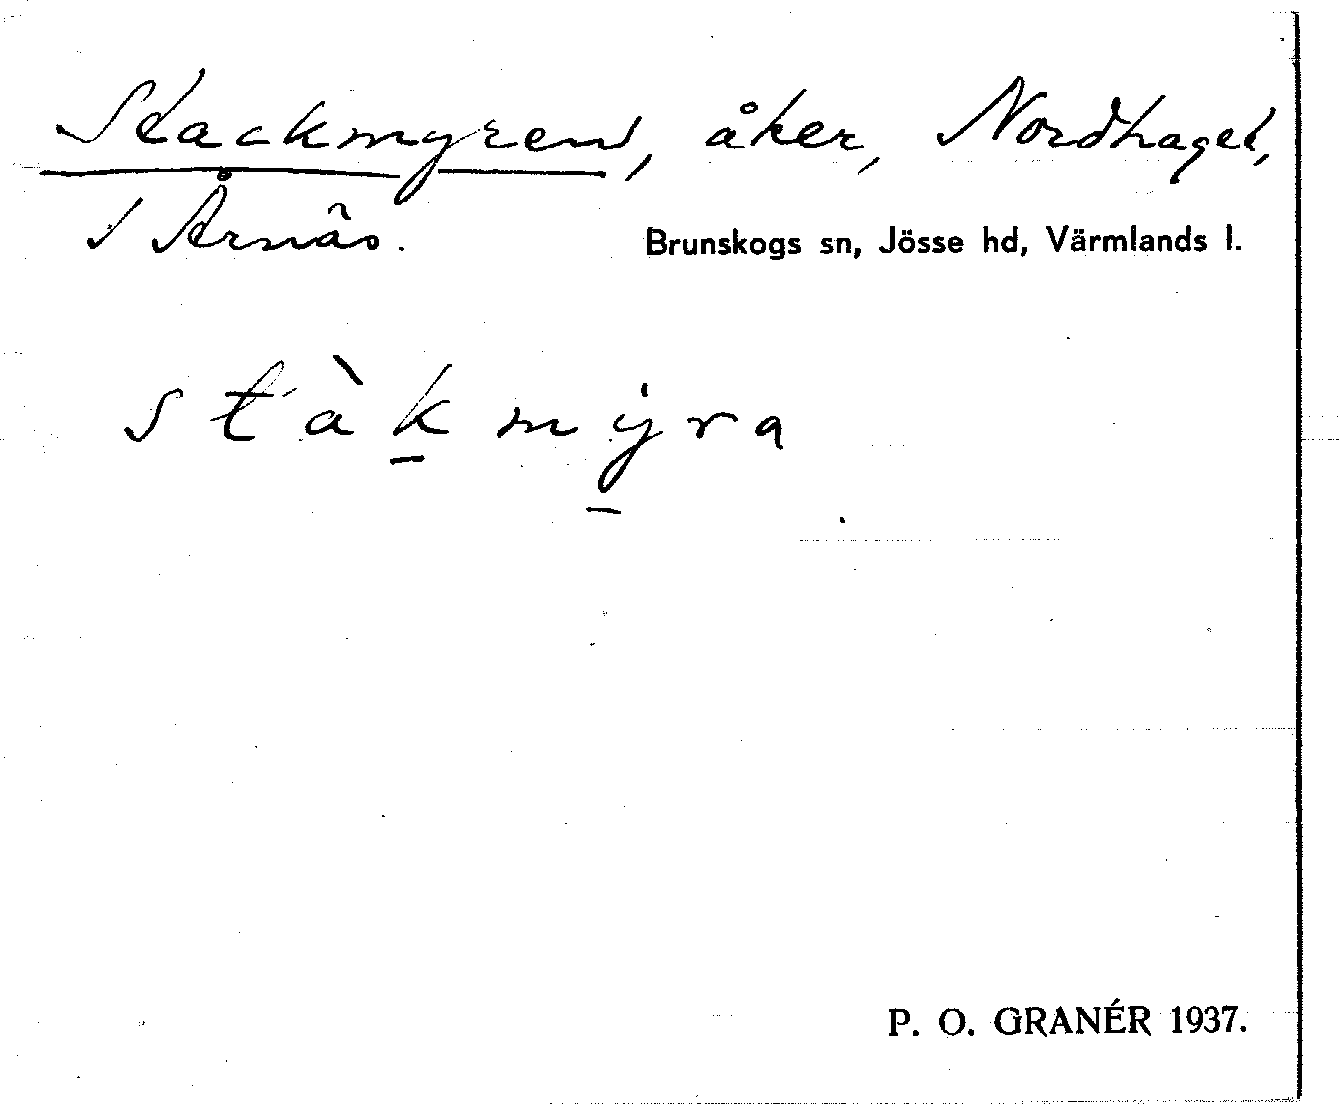 Stackmyren, åker, Nordhaget,
S Årnäs.
Brunskogs sn, Jösse hd, Värmlands l.
stàk̲mẏ̲ra
P. O. GRANÉR 1937.